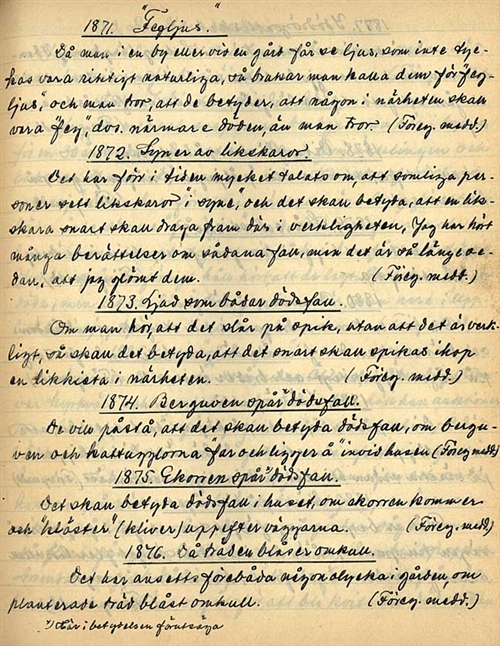 1871. "Fegljus."
Då man i en by eller vid en gård får se ljus, som inte tyc-
kas vara riktigt naturliga, så brukar man kalla dem för "feg-
ljus", och man tror, att de betyder, att någon i närheten skall
vara "feg", dvs. närmare döden, än man tror. (Föreg. medd.)
1872. Syner av likskaror.
Det har förr i tiden mycket talats om, att somliga per-
soner sett likskaror "i syne", och det skall betyda, att en lik-
skara snart skall draga fram där i verkligheten, Jag har hört
många berättelser om sådana fall, men det är så länge se-
dan, att jag glömt dem. (Föreg. medd.)
1873. Ljud som bådar dödsfall.
Om man hör, att det slår på spik, utan att det är verk-
ligt, så skall det betyda, att det snart skall spikas ihop
en likkista i närheten. (Föreg. medd.)
1874. Berguven "spår" dödsfall.
De vill påstå, att det skall betyda dödsfall, om bergu-
ven och kattugglorna "far och ligger å" invid husen (Föreg. medd)
1875. Ekorren "spår" dödsfall.
Det skall betyda dödsfall i huset, om ekorren kommer
och "kläster" (kliver) uppefter väggarna. (Föreg. medd)
1876. Då träden blåser omkull.
Det har ansetts förebåda någon olycka i gården om
planterade träd blåst omkull. (Föreg. medd.)
Här i betydelsen förutsäga